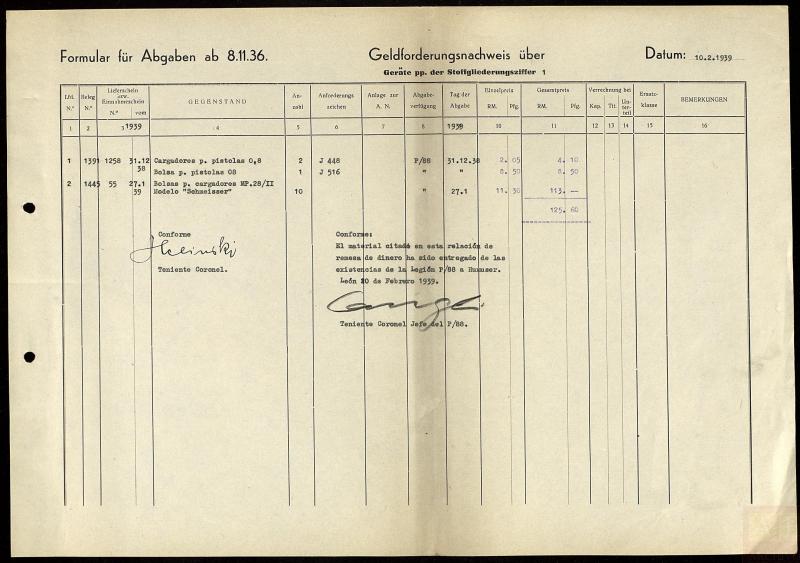 Formular für Abgaben ab 8.11.36. Geldforderungsnachweis über Datum: 10.2.1939
Geräte pp. der Stoffgliederungsziffer 1
Lfd. N.º Beleg N.º Lieferschein bzw. Einnahmeschein N.º vom GEGENSTAND An- zahl Anforderungs zeichen Anlage zur A. N. Abgabe- verfügung Tag der Abgabe Einzelpreis RM. Pfg. Gesamtpreis RM. Pfg. Verrechnung bei Kap. Tit. Un- ter- teil Ersatz- klasse BEMERKUNGEN
1 2 3 1939 4 5 6 7 8 1939 10 11 12 13 14 15 16
1 1391 1258 31.12 38 Cargadores p. pistolas 0,8 2 J 448 P/88 31.12.38 2. 05 4. 10
Bolsa p. pistolas 08 1 J 516 " " 8. 50 8. 50
2 1445 55 27.1 39 Bolsas p. cargadores MP.28/II
Modelo "Schmeisser" 10 " 27.1 11. 30 113. —
125. 60
Conforme
Teniente Coronel.
Conforme:
El material citado en esta relación de
remesa de dinero ha sido entregado de las
existencias de la Legión P/88 a
León 20 de Febrero 1939.
Teniente Coronel Jefe del P/88.